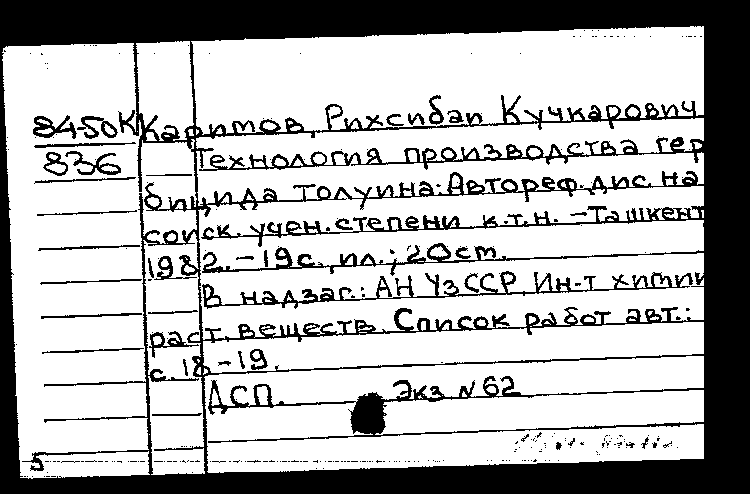 84-50К Каримов, Рихсибай Кучкарович
836 Технология производства гер
бицида толуина: Автореф. дис. на
соиск. учен. степени к.т.н. - Ташкент
1982. - 19с., ил.; 20см.
В надзаг.: АН УзССР, Ин-т химии
раст. веществ. Список работ авт.:
с. 18-19.
ДСП. Экз N 62
5